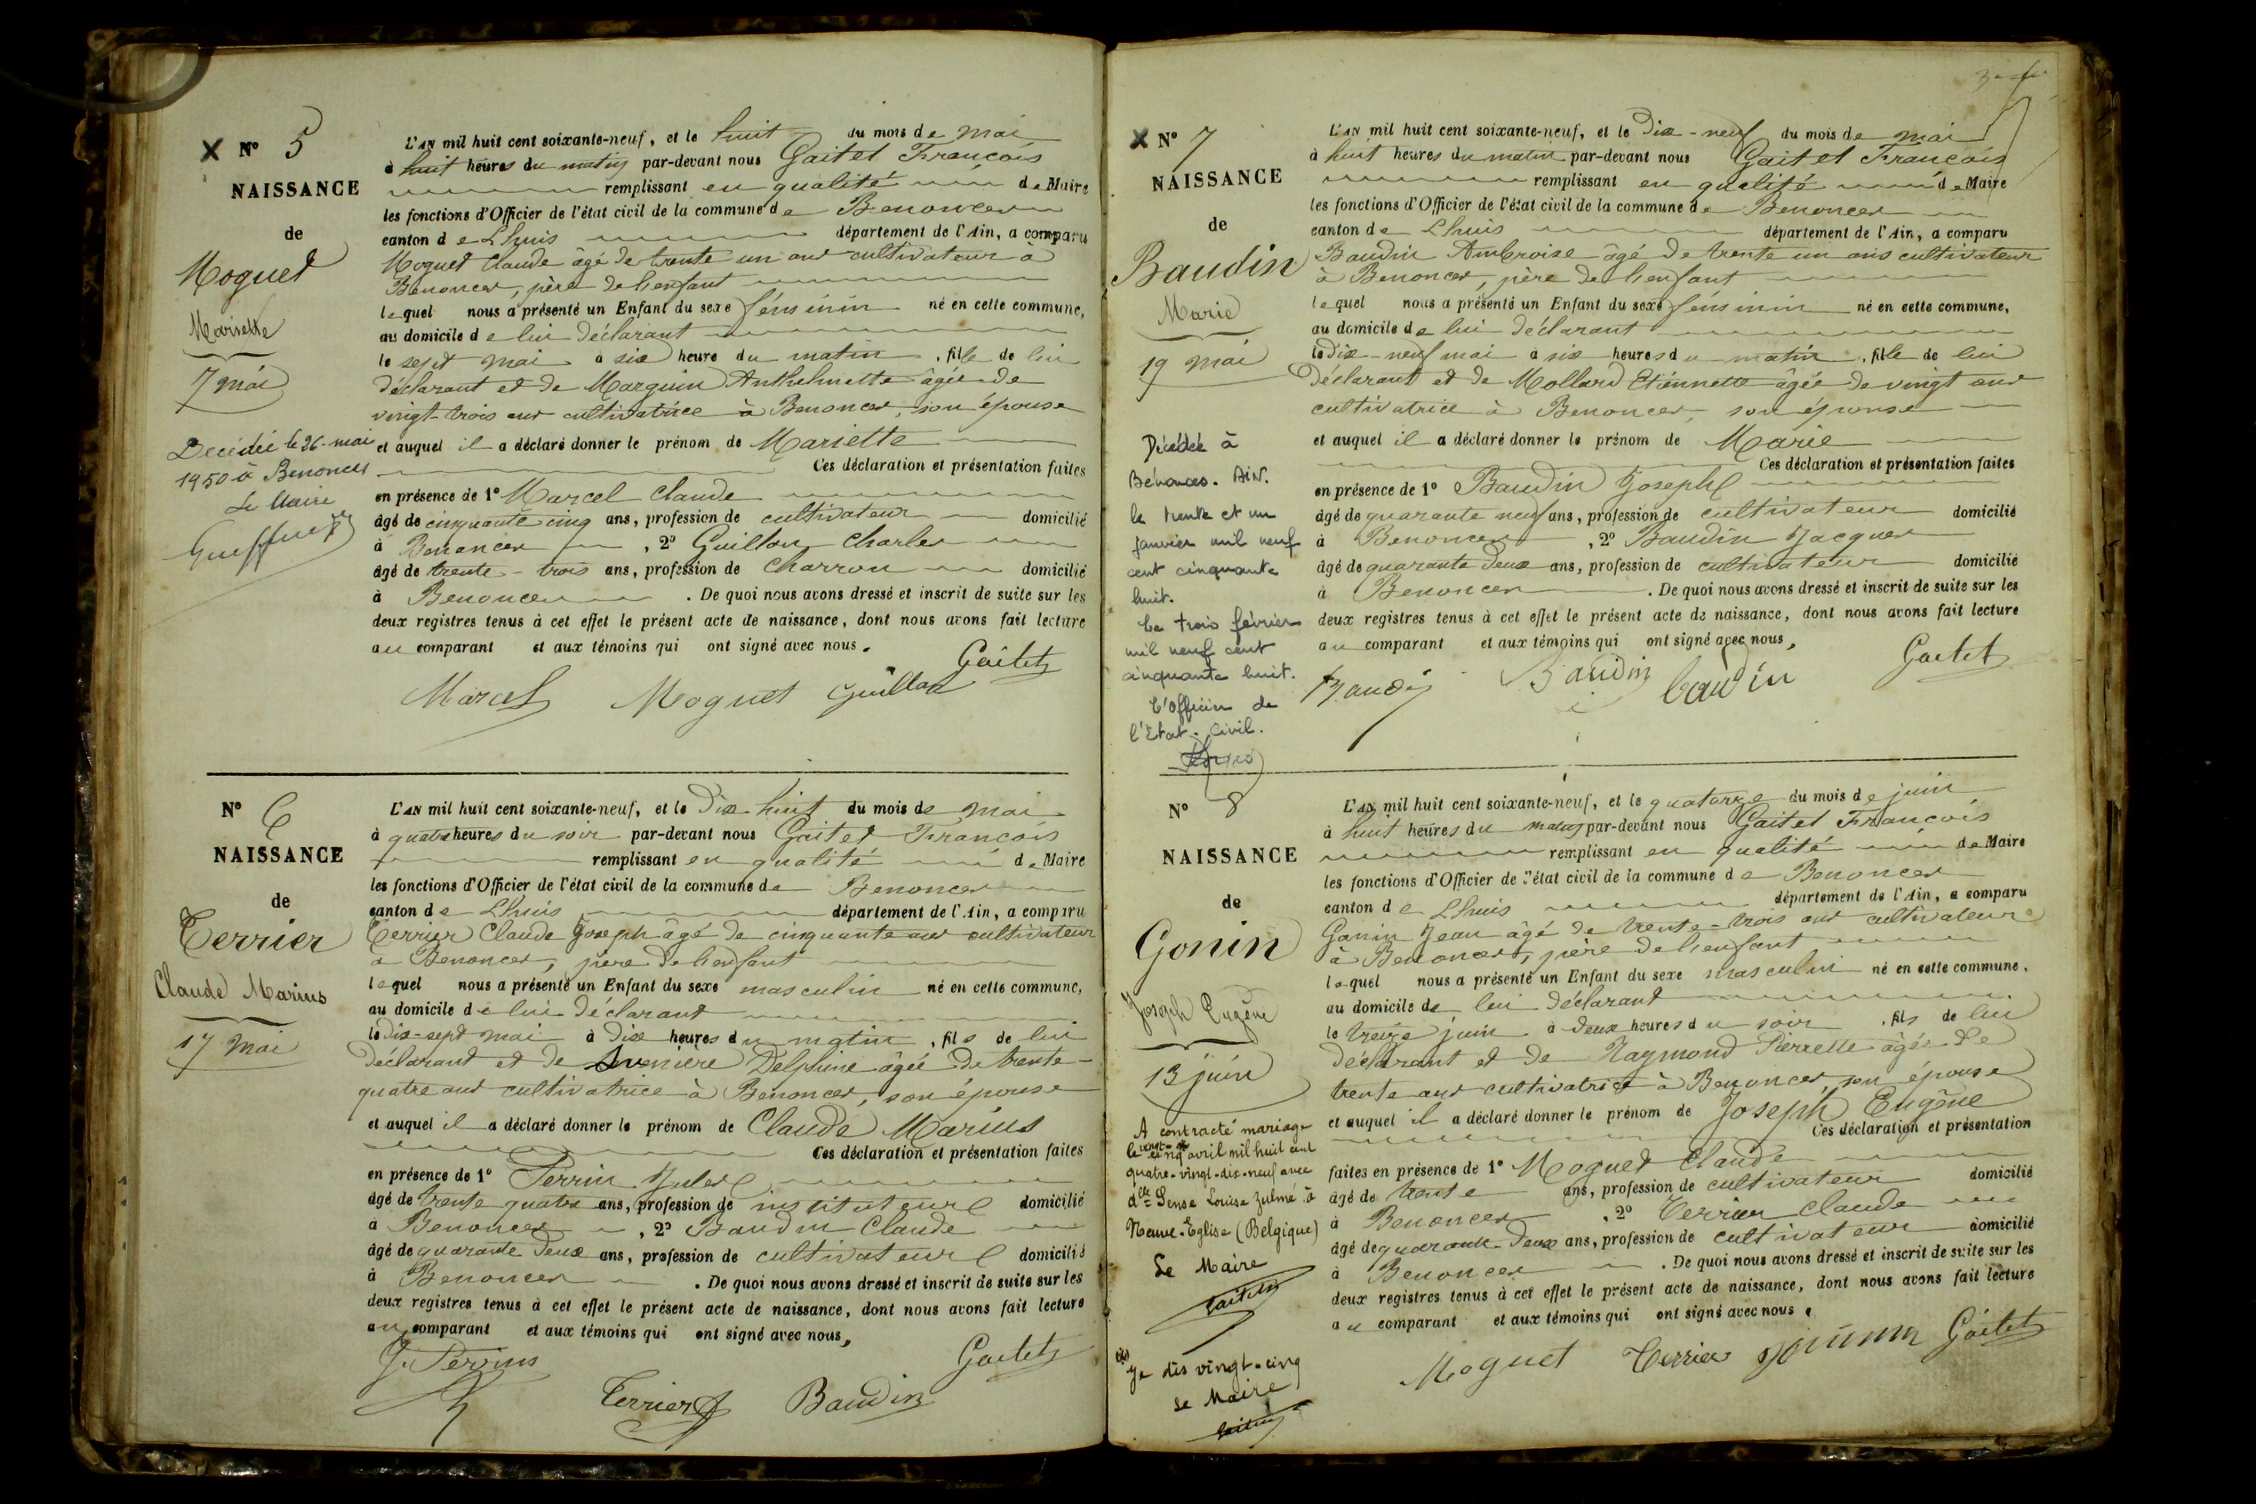 N° 5
NAISSANCE
de
Moguet
Mariette
7 mai
Décédée le 26 mai
1950 à Benonces
Le Maire
L'AN mil huit cent soixante-neuf, et le huit du mois de mai
à huit heures du matin par-devant nous Gaitet François
remplissant en qualité de Maire
les fonctions d'Officier de l'état civil de la commune de Benonces
canton de Lhuis département de l'Ain, a comparu
Moguet Claude âgé de trente un ans cultivateur à
Benonces, père de l'enfant
lequel nous a présenté un Enfant du sexe féminin né en cette commune,
au domicile de lui déclarant
le sept mai à six heure du matin, fille de lui
déclarant et de Marguin Anthelmette âgée de
vingt-trois ans cultivatrice à Benonces, son épouse
et auquel il a déclaré donner le prénom de Mariette
Ces déclaration et présentation faites
en présence de 1° Marcel Claude
âgé de cinquante cinq ans, profession de cultivateur domicilié
à Benonces, 2° Guillon Charles
âgé de trente-trois ans, profession de charron domicilié
à Benonces. De quoi nous avons dressé et inscrit de suite sur les
deux registres tenus à cet effet le présent acte de naissance, dont nous avons fait lecture
au comparant et aux témoins qui ont signé avec nous.
Gaitet
Marcel Moguet Guillon
N° 6
NAISSANCE
de
Terrier
Claude Marius
17 mai
L'AN mil huit cent soixante-neuf, et le Dix-huit du mois de mai
à quatre heures du soir par-devant nous Gaitet François
remplissant en qualité de Maire
les fonctions d'Officier de l'état civil de la commune de Benonces
canton de Lhuis département de l'Ain, a comparu
Terrier Claude Joseph âgé de cinquante ans cultivateur
à Benonces, père de l'enfant
lequel nous a présenté un Enfant du sexe masculin né en cette commune,
au domicile de lui déclarant
le dix-sept mai à dix heures du matin, fils de lui
déclarant et de Delphine âgée de trente-
quatre ans cultivatrice à Benonces, son épouse
et auquel il a déclaré donner le prénom de Claude Marius
Ces déclaration et présentation faites
en présence de 1° Perrin Jules
âgé de trente quatre ans, profession de instituteur domicilié
à Benonces, 2° Baudin Claude
âgé de quarante deux ans, profession de cultivateur domicilié
à Benonces. De quoi nous avons dressé et inscrit de suite sur les
deux registres tenus à cet effet le présent acte de naissance, dont nous avons fait lecture
au comparant et aux témoins qui ont signé avec nous,
J. Perrin Gaitet
Terrier Baudin
N° 7
NAISSANCE
de
Baudin
Marie
19 mai
Décédée à
Bénonces. AIN.
le trente et un
janvier mil neuf
cent cinquante
huit.
Le trois février
mil neuf cent
cinquante huit.
L'officier de
l'Etat. Civil.
L'AN mil huit cent soixante-neuf, et le Dix-neuf du mois de mai
à huit heures du matin par-devant nous Gaitet François
remplissant en qualité de Maire
les fonctions d'Officier de l'état civil de la commune de Benonces
canton de Lhuis département de l'Ain, a comparu
Baudin Ambroise âgé de trente un ans cultivateur
à Benonces, père de l'enfant
lequel nous a présenté un Enfant du sexe féminin né en cette commune,
au domicile de lui déclarant
le Dix-neuf mai à six heures du matin, fille de lui
déclarant et de Mollard Etiennette âgée de vingt ans
cultivatrice à Benonces, son épouse
et auquel il a déclaré donner le prénom de Marie
Ces déclaration et présentation faites
en présence de 1° Baudin Joseph
âgé de quarante neuf ans, profession de cultivateur domicilié
à Benonces, 2° Baudin Jacques
âgé de quarante deux ans, profession de cultivateur domicilié
à Benonces. De quoi nous avons dressé et inscrit de suite sur les
deux registres tenus à cet effet le présent acte de naissance, dont nous avons fait lecture
au comparant et aux témoins qui ont signé avec nous,
Baudin Baudin baudin Gaitet
N° 8
NAISSANCE
de
Gonin
Joseph Eugène
13 juin
A contracté mariage
le vingt-cinq avril mil huit cent
quatre-vingt-dix-neuf avec
dlle Louise Zulmé à
Neuve-Eglise (Belgique)
Le Maire
Gaitet
Je dis vingt-cinq
Le Maire
Gaitet
L'AN mil huit cent soixante-neuf, et le quatorze du mois de juin
à huit heures du matin par-devant nous Gaitet François
remplissant en qualité de Maire
les fonctions d'Officier de l'état civil de la commune de Benonces
canton de Lhuis département de l'Ain, a comparu
Gonin Jean âgé de trente-trois ans cultivateur
à Benonces, père de l'enfant
lequel nous a présenté un Enfant du sexe masculin né en cette commune,
au domicile de lui déclarant
le treize juin à deux heures du soir, fils de lui
déclarant et de Raymond Pierrette âgée de
trente ans cultivatrice à Benonces, son épouse
et auquel il a déclaré donner le prénom de Joseph Eugène
Ces déclaration et présentation
faites en présence de 1° Moguet Claude
âgé de trente ans, profession de cultivateur domicilié
à Benonces, 2° Terrier Claude
âgé de quarante-deux ans, profession de cultivateur domicilié
à Benonces. De quoi nous avons dressé et inscrit de suite sur les
deux registres tenus à cet effet le présent acte de naissance, dont nous avons fait lecture
au comparant et aux témoins qui ont signé avec nous.
Moguet Terrier gounin Gaitet